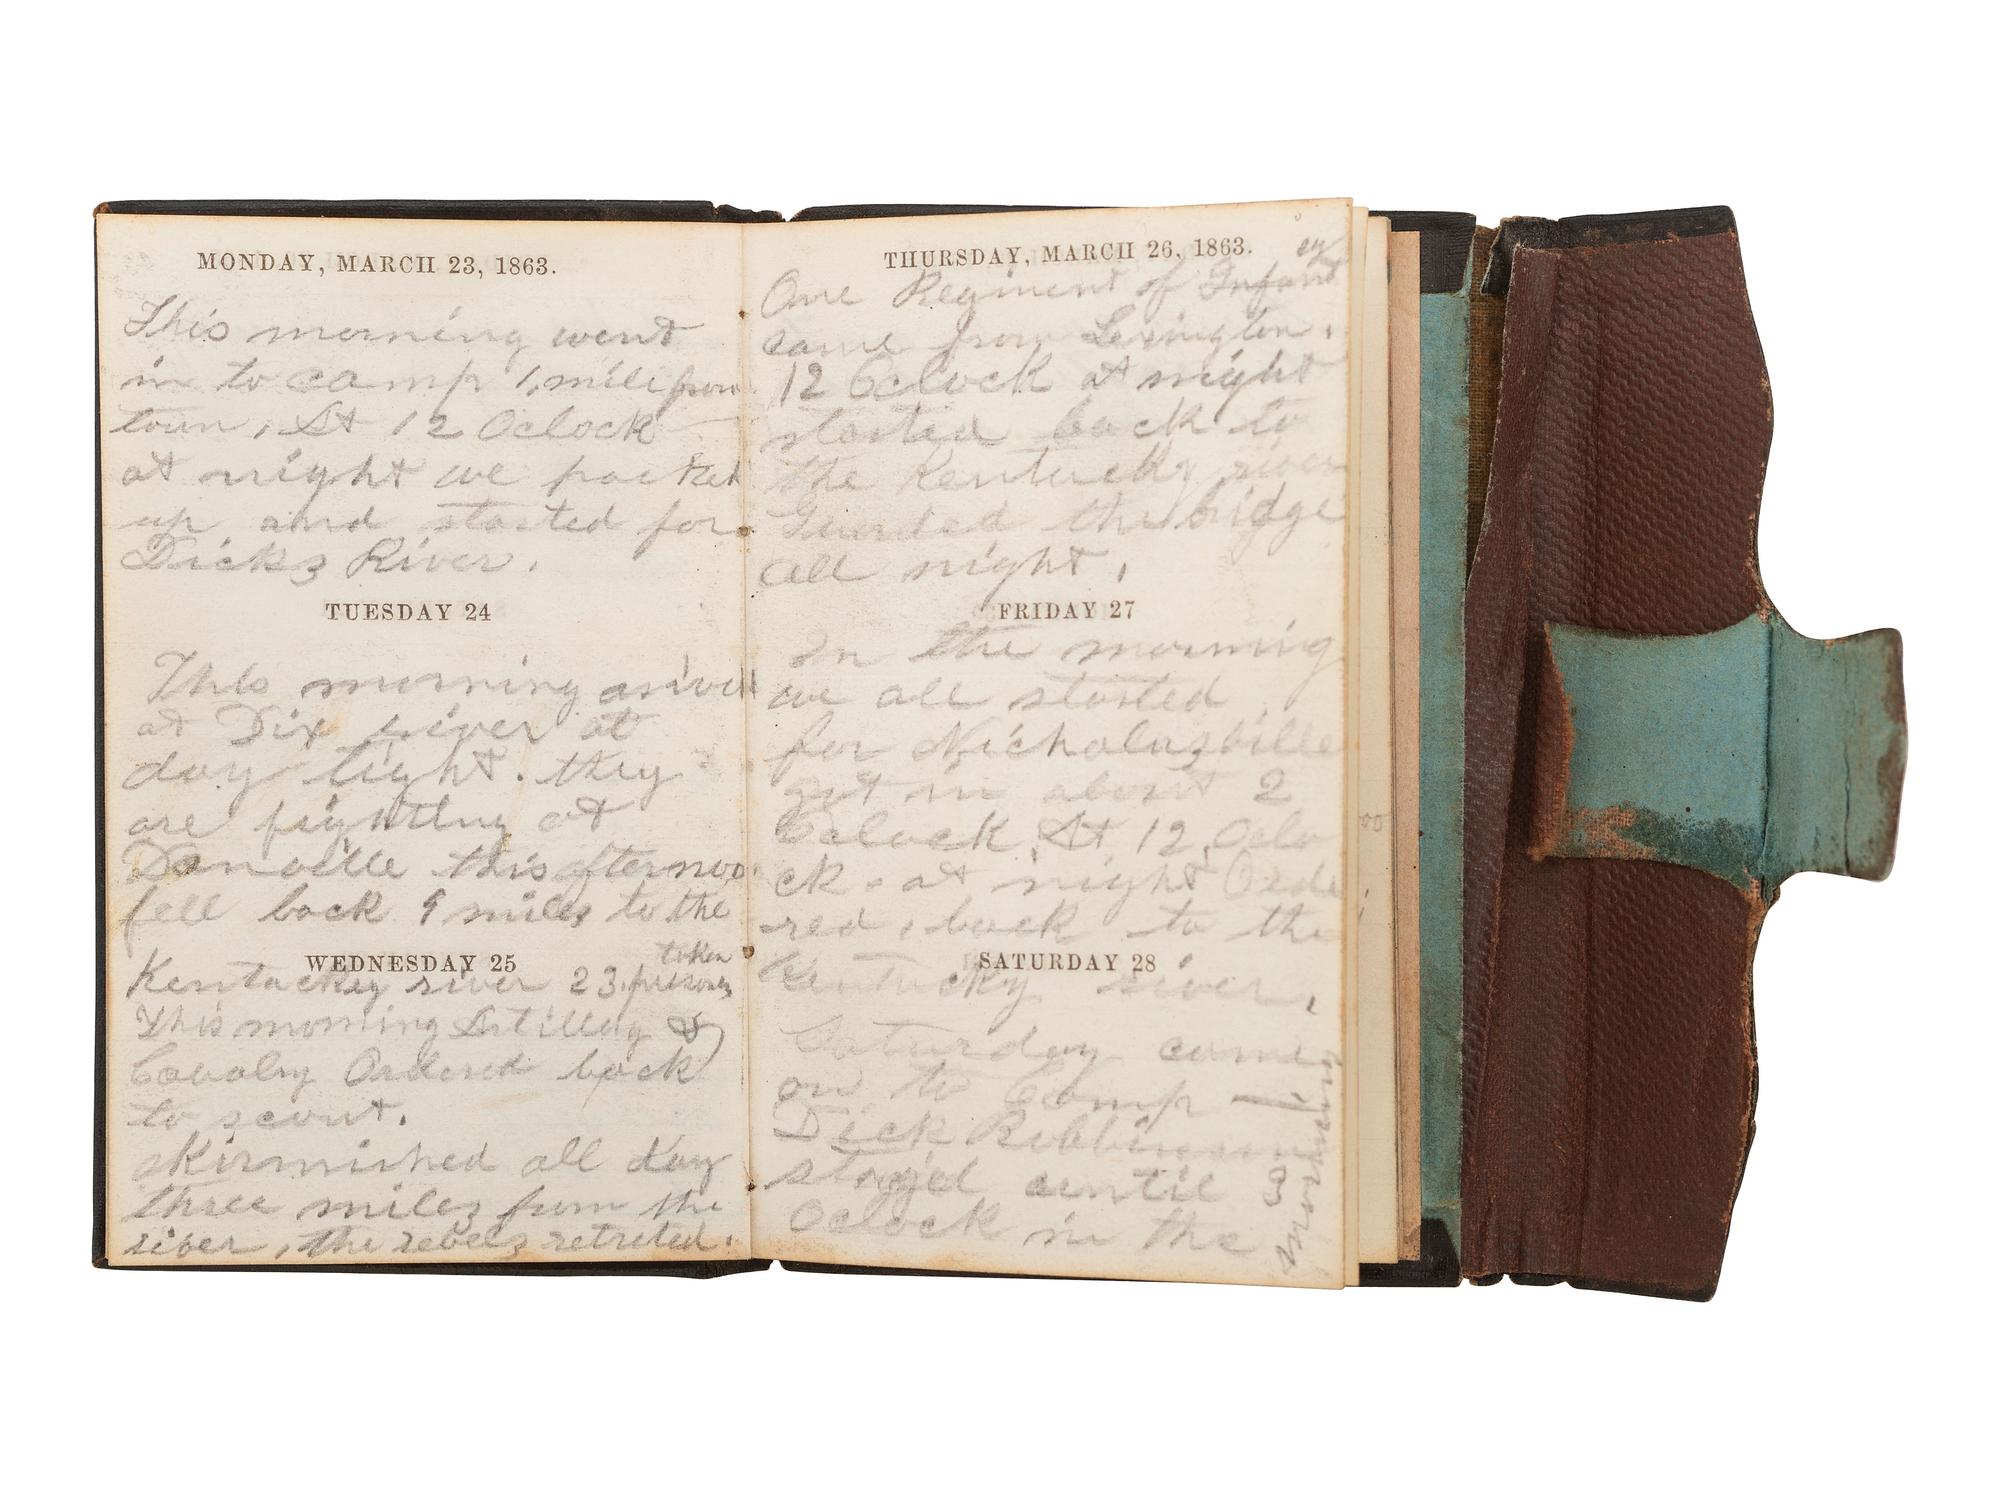 MONDAY, MARCH 23, 1863.
This morning went
in to camp 1, mile from
town, At 12 Oclock
at night we packed
up and started for
Dicks River.
TUESDAY 24
This morning arived
at Dix river at
day light. they
are fighting at
Danville this afternoo
fell back 9 miles to the
WEDNESDAY 25
taken
Kentuckey river 23, prisoners
This morning Artillery &
Cavalry Ordered back
to scout.
skirmished all day
three miles from the
river, the rebels retreted.
THURSDAY, MARCH 26, 1863.
ry
One Regiment of Infant
came from Lexington.
12 Oclock at night
started back to
the Kentucky river
Gurded the bridge
all night,
FRIDAY 27
In the morning
we all started
for Nicholasbille
got in about 2
Oclock. At 12, Oclo
ck. at night Orde
red, back to the
SATURDAY 28
Kentucky river,
Saturday came
on to Camp
Dick Robbinson
stayed auntil 3
Oclock in the
morning
00